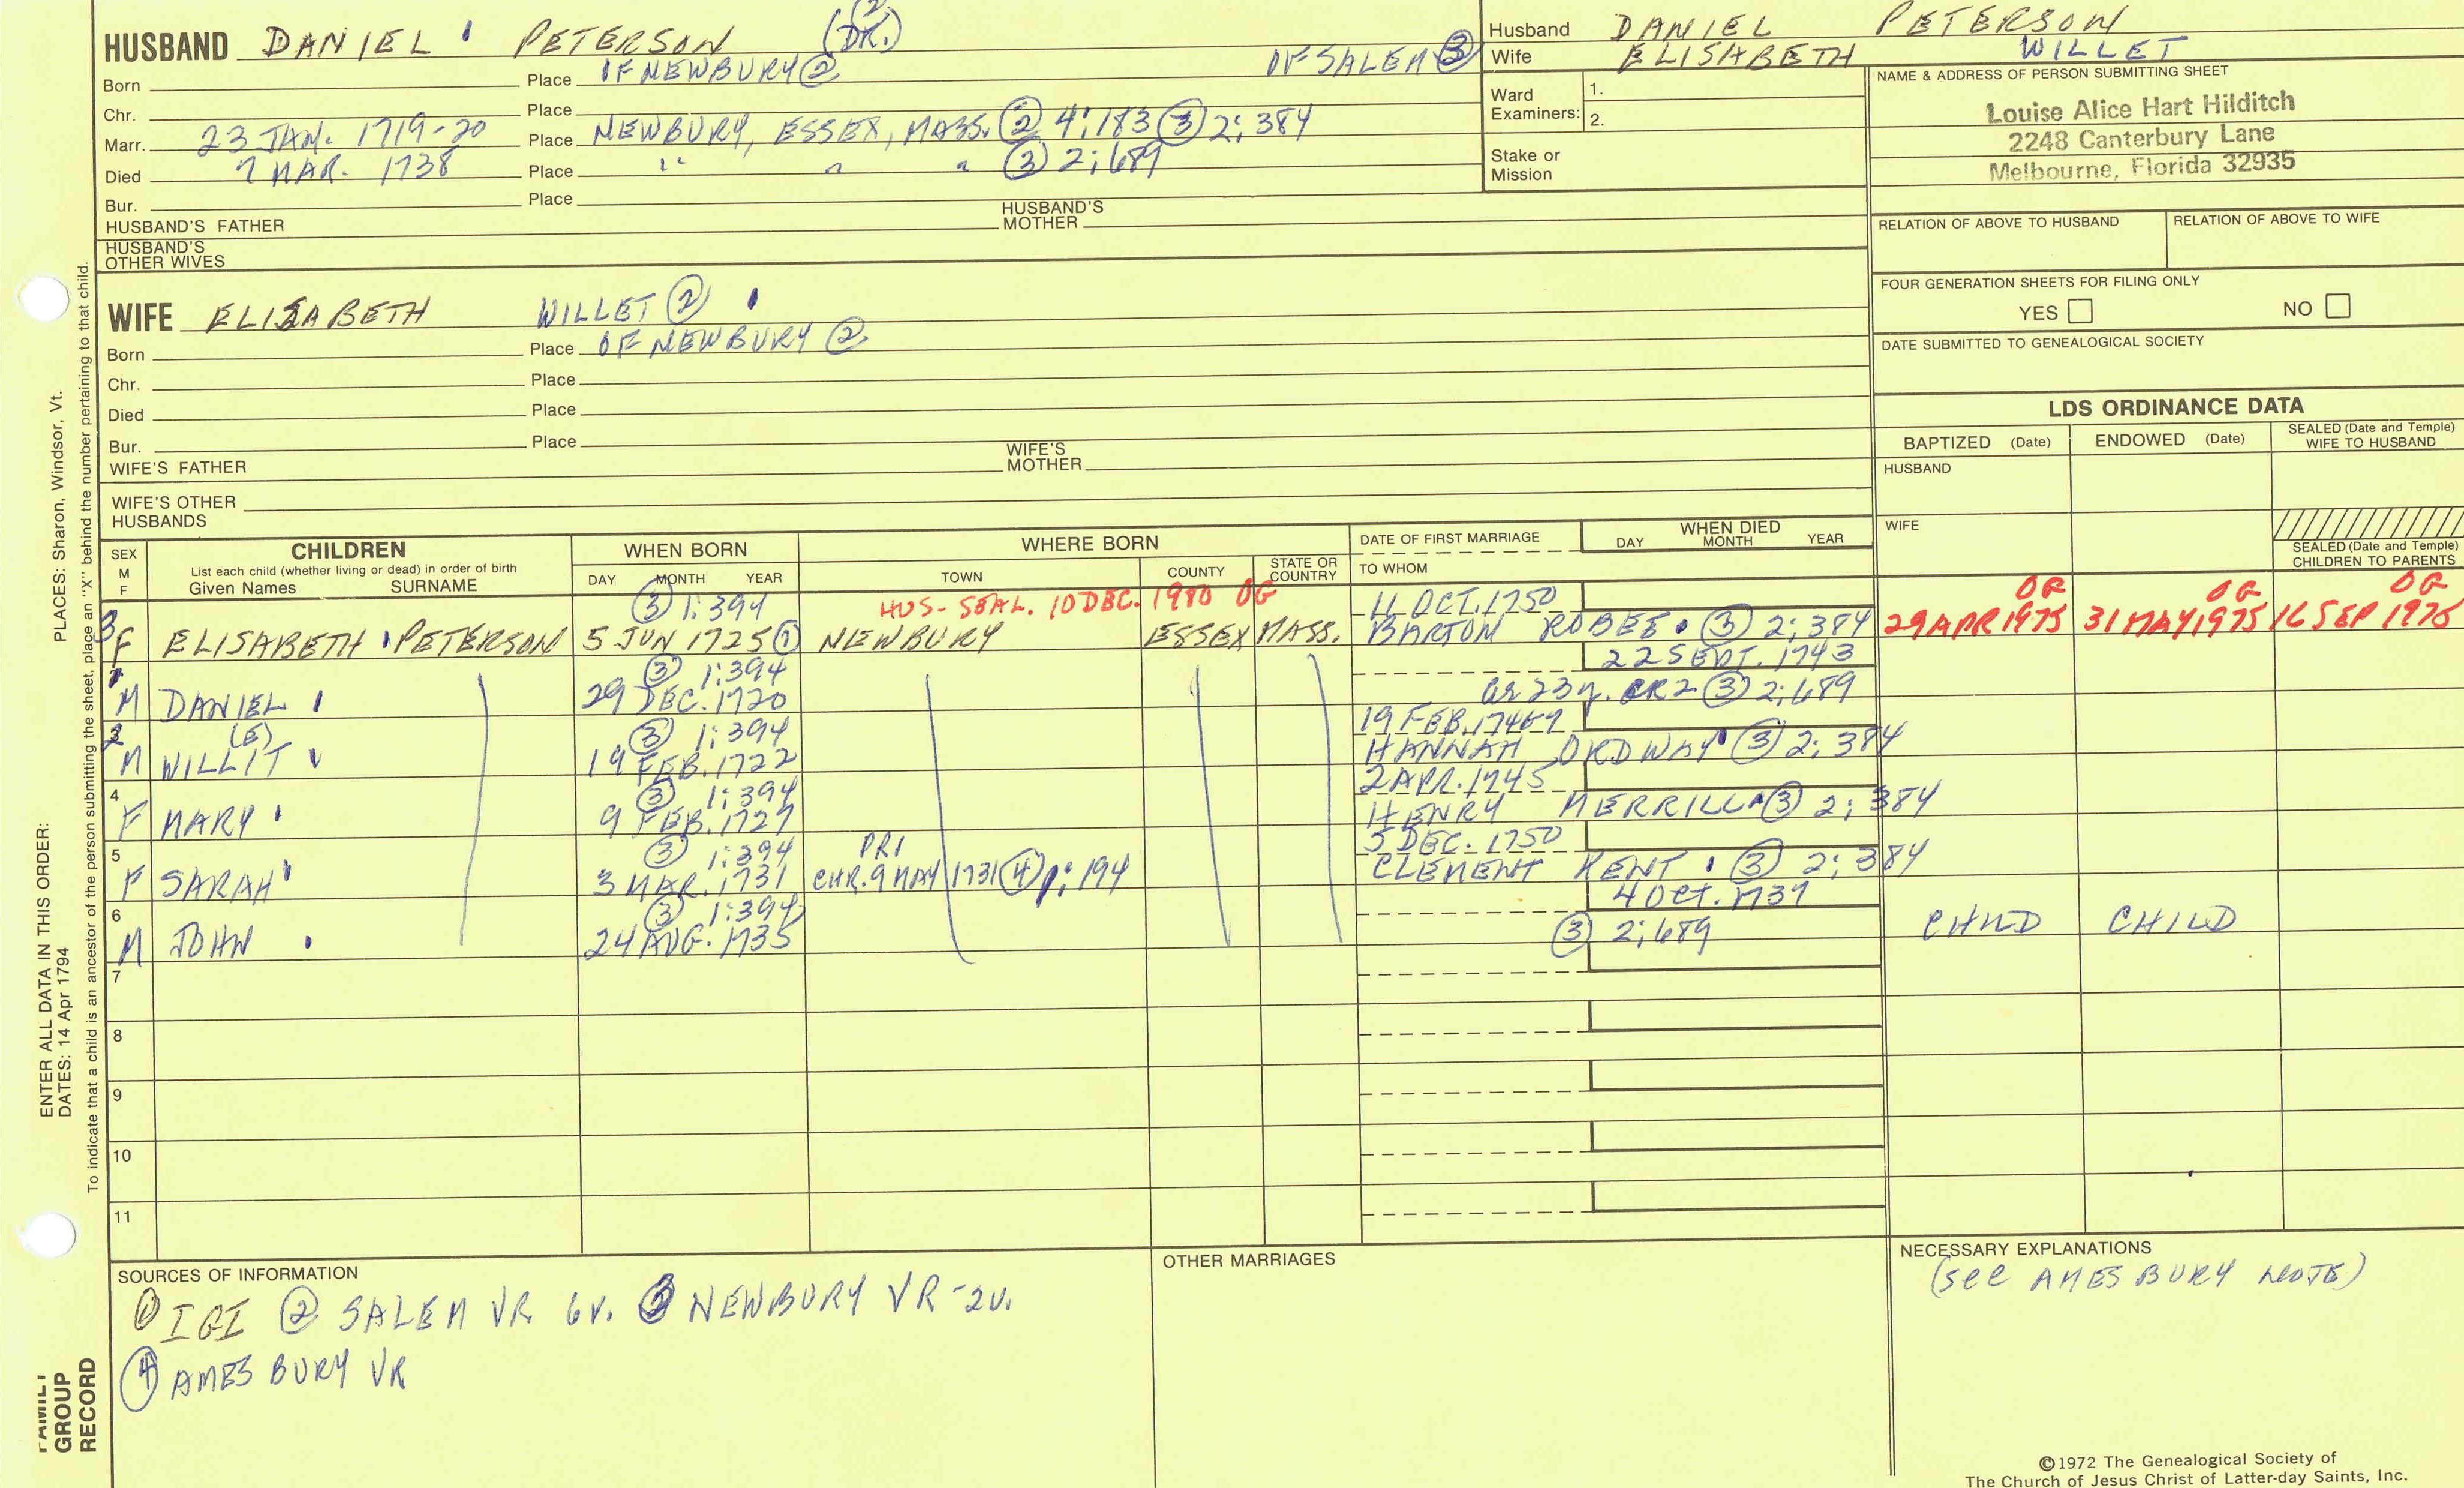 HUSBAND DANIEL PETERSON (DR.) (2)
Born Place OF NEWBURY (2) OF SALEM (3)
Chr. Place
Marr. 23 JAN. 1719-20 Place NEWBURY, ESSEX, MASS. (2) 4:183 (3) 2:384
Died 7 MAR. 1738 Place " " " (3) 2:689
Bur. Place
HUSBAND'S FATHER HUSBAND'S MOTHER
HUSBAND'S OTHER WIVES
Husband DANIEL PETERSON
Wife ELISABETH WILLET
Ward Examiners: 1.
2.
Stake or Mission
NAME & ADDRESS OF PERSON SUBMITTING SHEET
Louise Alice Hart Hilditch
2248 Canterbury Lane
Melbourne, Florida 32935
RELATION OF ABOVE TO HUSBAND RELATION OF ABOVE TO WIFE
FOUR GENERATION SHEETS FOR FILING ONLY
YES NO
DATE SUBMITTED TO GENEALOGICAL SOCIETY
WIFE ELISABETH WILLET (2)
Born Place OF NEWBURY (2)
Chr. Place
Died Place
Bur. Place
WIFE'S FATHER WIFE'S MOTHER
WIFE'S OTHER HUSBANDS
LDS ORDINANCE DATA
BAPTIZED (Date) ENDOWED (Date) SEALED (Date and Temple) WIFE TO HUSBAND
HUSBAND
WIFE
SEALED (Date and Temple) CHILDREN TO PARENTS
SEX M F
CHILDREN
List each child (whether living or dead) in order of birth
Given Names SURNAME
WHEN BORN
DAY MONTH YEAR
WHERE BORN
TOWN COUNTY STATE OR COUNTRY
DATE OF FIRST MARRIAGE
TO WHOM
WHEN DIED
DAY MONTH YEAR
(3) 1:394 HUS- SEAL. 10 DEC. 1980 OG 11 OCT. 1750 OG OG OG
3 F ELISABETH PETERSON 5 JUN 1725 (1) NEWBURY ESSEX MASS. BARTON (3) 2:384 29 APR 1975 31 MAY 1975 16 SEP 1975
(3) 1:394 22 SEPT. 1743
1 M DANIEL 29 DEC. 1720 ae 23y. CR2 (3) 2:689
(E) (3) 1:394 19 FEB. 
2 M WILLIT 19 FEB. 1722 HANNAH ORDWAY (3) 2:384
(3) 1:394 2 APR. 1745
4 F MARY 9 FEB. 1727 HENRY MERRILL (3) 2:384
(3) 1:394 PR1 5 DEC. 1750
5 F SARAH 3 MAR. 1731 CHR. 9 MAY 1731 (4) 1:194 CLEMENT KENT (3) 2:384
(3) 1:394 4 OCT. 1737
6 M JOHN 24 AUG. 1735 (3) 2:689 CHILD CHILD
7
8
9
10
11
SOURCES OF INFORMATION
(1) IGI (2) SALEM VR 6V. (3) NEWBURY VR-2V.
(4) AMESBURY VR
OTHER MARRIAGES
NECESSARY EXPLANATIONS
(see AMESBURY NOTE)
©1972 The Genealogical Society of
The Church of Jesus Christ of Latter-day Saints, Inc.
ENTER ALL DATA IN THIS ORDER:
DATES: 14 Apr 1794
PLACES: Sharon, Windsor, Vt.
To indicate that a child is an ancestor of the person submitting the sheet, place an "X" behind the number pertaining to that child.
FAMILY
GROUP
RECORD